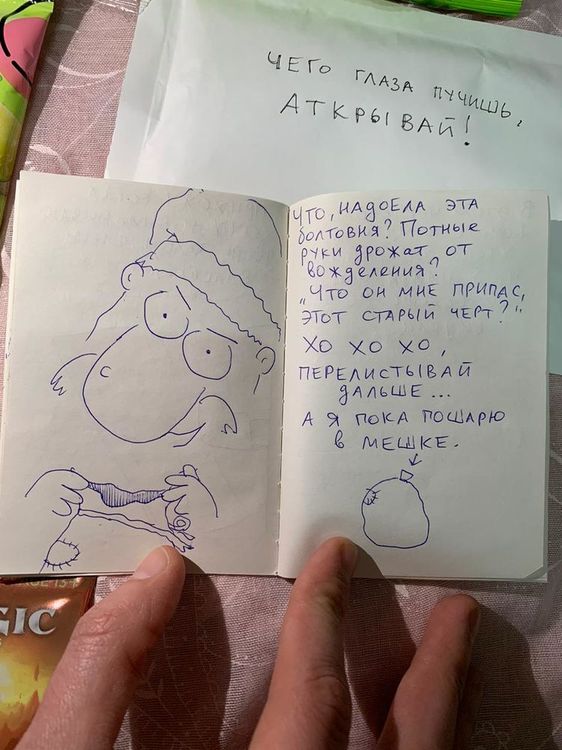 ЧЕГО ГЛАЗА ПУЧИШЬ,
АТКРЫВАЙ!
ЧТО, НАДОЕЛА ЭТА
БОЛТОВНЯ? ПОТНЫЕ
РУКИ ДРОЖАТ ОТ
ВОЖДЕЛЕНИЯ?
„ЧТО ОН МНЕ ПРИПАС,
ЭТОТ СТАРЫЙ ЧЕРТ?"
ХО ХО ХО,
ПЕРЕЛИСТЫВАЙ
ДАЛЬШЕ...
А Я ПОКА ПОШАРЮ
В МЕШКЕ.
GIC